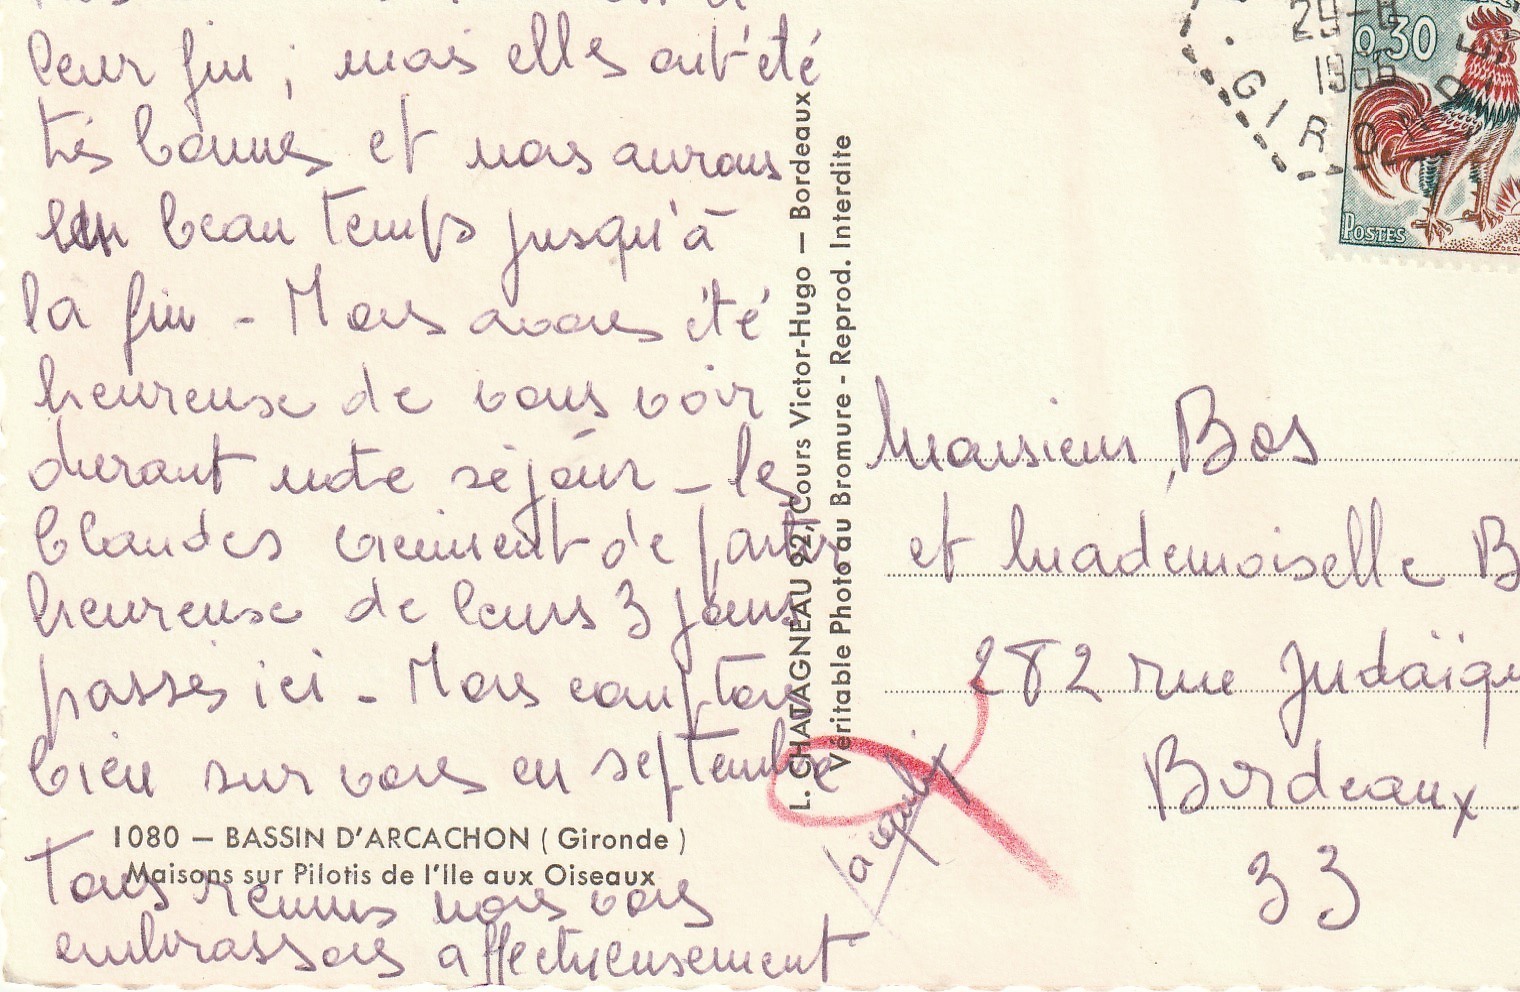 leur fin, mais elles ont été
très bonnes et nous aurons
eu beau temps jusqu'à
la fin - Nous avons été
heureuse de vous voir
durant notre séjour - les
blandes viennent de partir
heureuse de leurs 3 jours
passés ici - Nous comptons
bien sur vous en septembre
1080 — BASSIN D'ARCACHON (Gironde)
Maisons sur Pilotis de l'Ile aux Oiseaux
Tous réunis nous vous
embrassons affectueusement
L. CHATAGNEAU 92, Cours Victor-Hugo — Bordeaux
Véritable Photo au Bromure - Reprod. Interdite
29-8
1966
GIRONDE
0,30
POSTES
Monsieur Bos
et Mademoiselle B
282 rue Judaïqu
Bordeaux
33